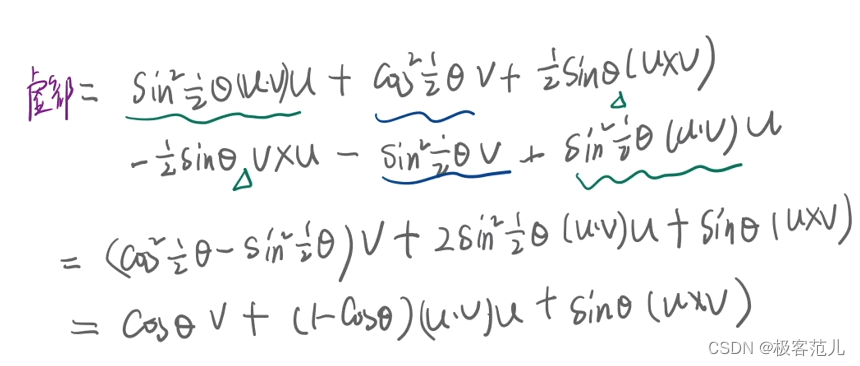 虚部 = sin²½θ(u·v)u + cos²½θ v + ½sinθ(u×v)
-½sinθ v×u - sin²½θ v + sin²½θ(u·v)u
= (cos²½θ - sin²½θ)v + 2sin²½θ(u·v)u + sinθ(u×v)
= cosθ v + (1-cosθ)(u·v)u + sinθ(u×v)
CSDN @极客范儿